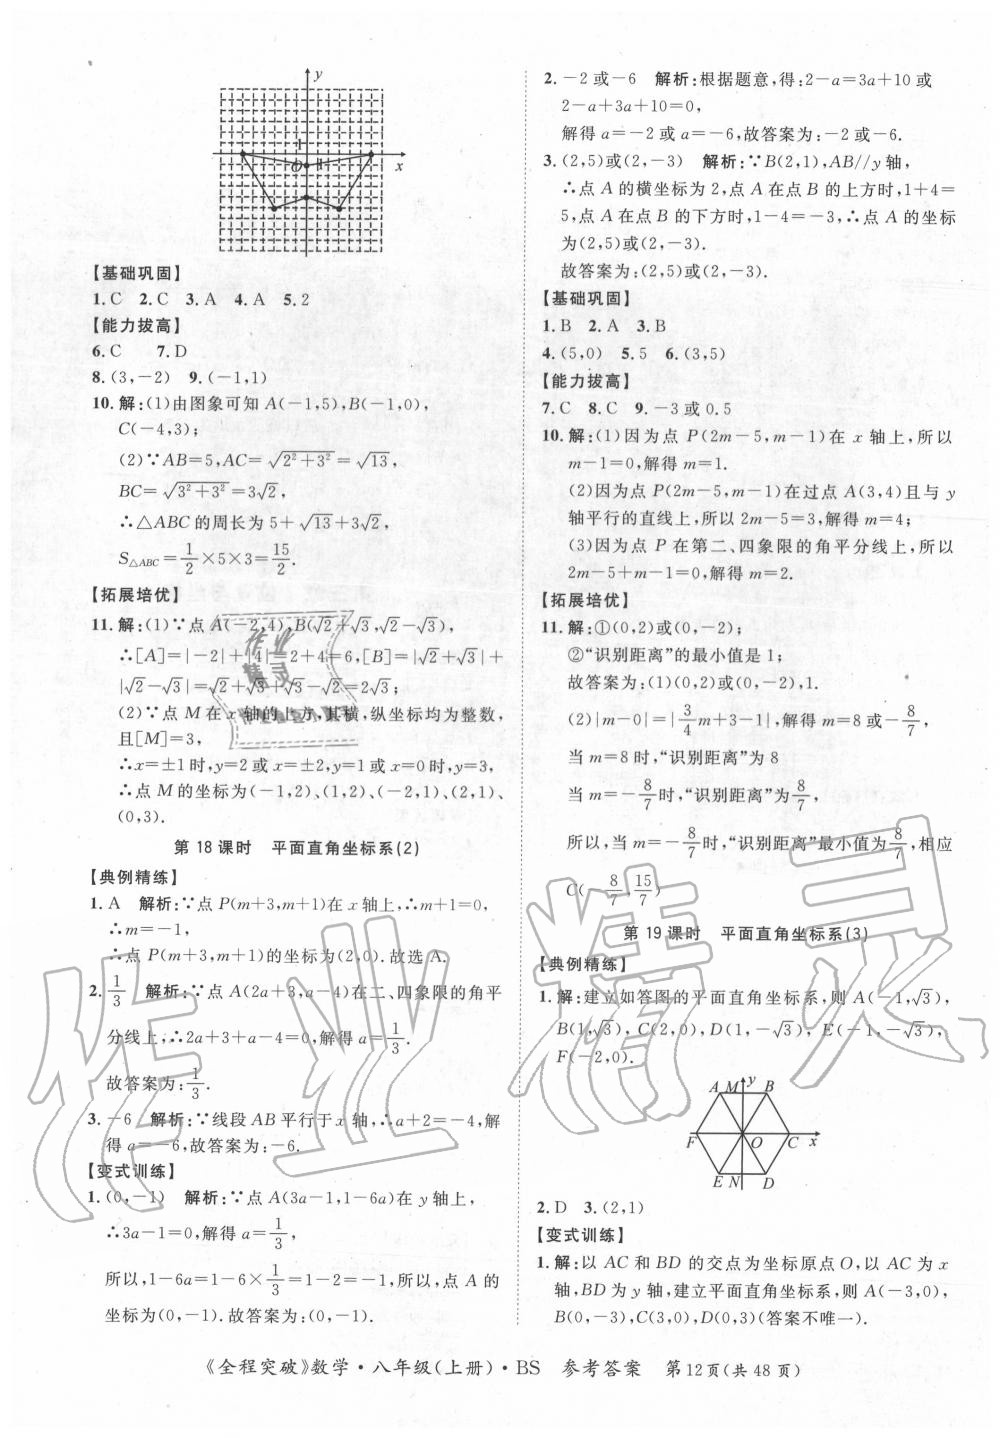 y
1
O
1
x
【基础巩固】
1.C 2.C 3.A 4.A 5.2
【能力拔高】
6.C 7.D
8.(3,-2) 9.(-1,1)
10.解:(1)由图象可知 A(-1,5),B(-1,0),
C(-4,3);
(2)∵AB=5,AC=√(2²+3²)=√13,
BC=√(3²+3²)=3√2,
∴△ABC 的周长为 5+√13+3√2,
S△ABC=1/2×5×3=15/2.
【拓展培优】
11.解:(1)∵点 A(-2,4),B(√2+√3,√2-√3),
∴[A]=|-2|+|4|=2+4=6,[B]=|√2+√3|+
|√2-√3|=√2+√3+√3-√2=2√3;
(2)∵点 M 在 x 轴的上方,其横,纵坐标均为整数,
且[M]=3,
∴x=±1 时,y=2 或 x=±2 时,y=1 或 x=0 时,y=3,
∴点 M 的坐标为(-1,2),(1,2),(-2,1),(2,1),
(0,3).
第 18 课时 平面直角坐标系(2)
【典例精练】
1.A 解析:∵点 P(m+3,m+1)在 x 轴上,∴m+1=0,
∴m=-1,
∴点 P(m+3,m+1)的坐标为(2,0).故选 A.
2.1/3 解析:∵点 A(2a+3,a-4)在二、四象限的角平
分线上,∴2a+3+a-4=0,解得 a=1/3.
故答案为:1/3.
3.-6 解析:∵线段 AB 平行于 x 轴,∴a+2=-4,解
得 a=-6,故答案为:-6.
【变式训练】
1.(0,-1) 解析:∵点 A(3a-1,1-6a)在 y 轴上,
∴3a-1=0,解得 a=1/3,
所以,1-6a=1-6×1/3=1-2=-1,所以,点 A 的
坐标为(0,-1).故答案为:(0,-1).
2.-2 或-6 解析:根据题意,得:2-a=3a+10 或
2-a+3a+10=0,
解得 a=-2 或 a=-6,故答案为:-2 或-6.
3.(2,5)或(2,-3) 解析:∵B(2,1),AB//y 轴,
∴点 A 的横坐标为 2,点 A 在点 B 的上方时,1+4=
5,点 A 在点 B 的下方时,1-4=-3,∴点 A 的坐标
为(2,5)或(2,-3).
故答案为:(2,5)或(2,-3).
【基础巩固】
1.B 2.A 3.B
4.(5,0) 5.5 6.(3,5)
【能力拔高】
7.C 8.C 9.-3 或 0.5
10.解:(1)因为点 P(2m-5,m-1)在 x 轴上,所以
m-1=0,解得 m=1.
(2)因为点 P(2m-5,m-1)在过点 A(3,4)且与 y
轴平行的直线上,所以 2m-5=3,解得 m=4;
(3)因为点 P 在第二、四象限的角平分线上,所以
2m-5+m-1=0,解得 m=2.
【拓展培优】
11.解:①(0,2)或(0,-2);
②“识别距离”的最小值是 1;
故答案为:(1)(0,2)或(0,-2),1.
(2)|m-0|=|3/4m+3-1|,解得 m=8 或-8/7,
当 m=8 时,“识别距离”为 8
当 m=-8/7时,“识别距离”为8/7,
所以,当 m=-8/7时,“识别距离”最小值为8/7,相应
C(-8/7,15/7)
第 19 课时 平面直角坐标系(3)
【典例精练】
1.解:建立如答图的平面直角坐标系,则 A(-1,√3),
B(1,√3),C(2,0),D(1,-√3),E(-1,-√3),
F(-2,0).
A M y B
F O C x
E N D
2.D 3.(2,1)
【变式训练】
1.解:以 AC 和 BD 的交点为坐标原点 O,以 AC 为 x
轴,BD 为 y 轴,建立平面直角坐标系,则 A(-3,0),
B(0,-3),C(3,0),D(0,3)(答案不唯一).
《全程突破》数学·八年级(上册)·BS 参考答案 第12页(共 48 页)
作业精灵